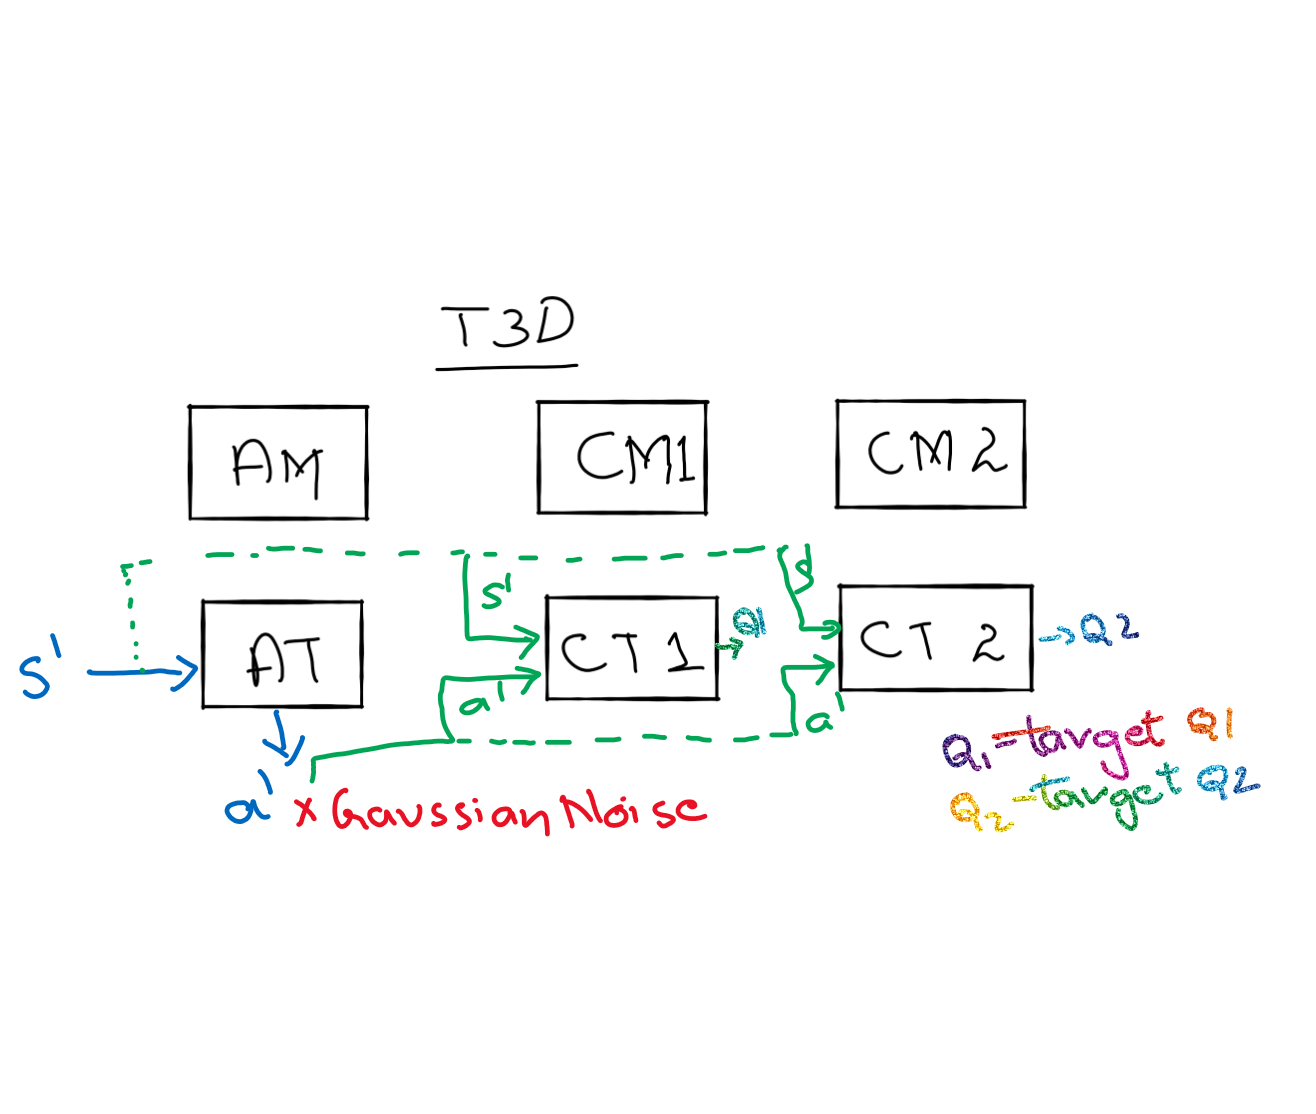 T3D
AM
CM1
CM2
s'
s'
AT
CT1
Q1
CT 2
Q2
s'
a'
a'
a' x Gaussian Noise
Q1-target Q1
Q2-target Q2